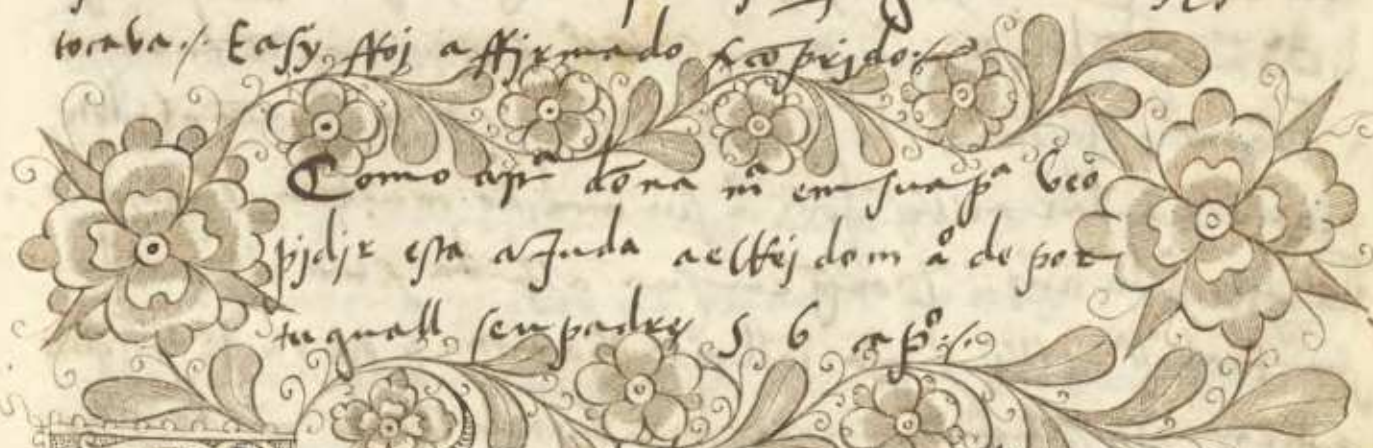 tocava ./. E asy ffoj affirmado & cõprido ./.
Como a Rª dona mª em sua pª veo
pidir esta aJuda a elRej dom aº de por
tuquall seu padre 56 capº ./.